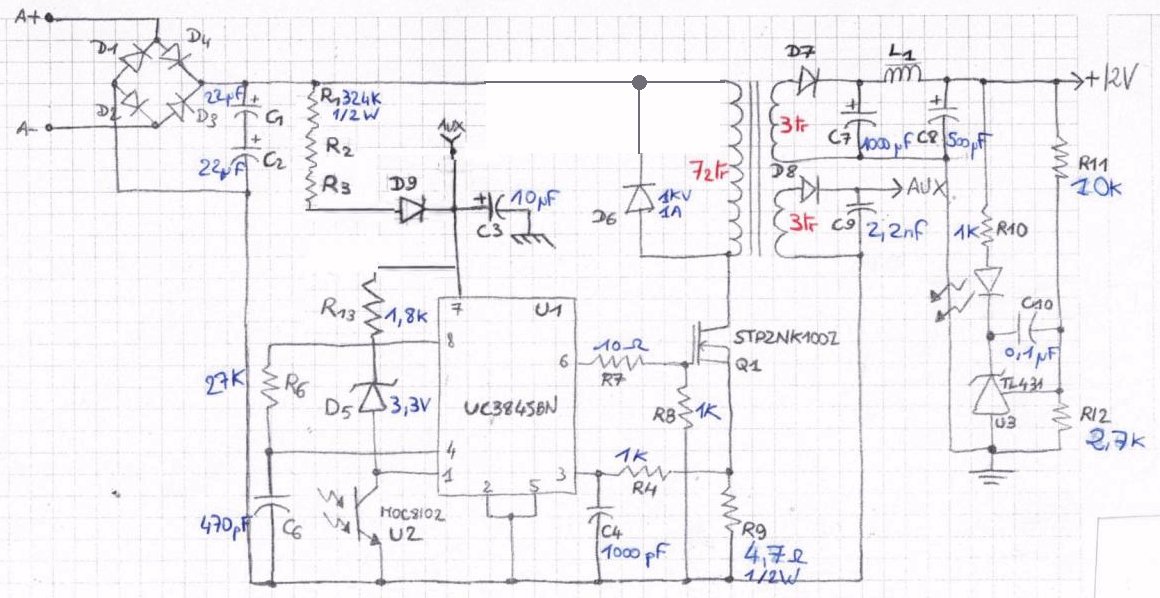 A+
D1
D4
D2
D3
A-
22µF
+
C1
+
C2
22µF
R1 324K
1/2W
R2
R3
AUX
D9
+
C3
10µF
D6
1KV
1A
72tr
D7
L1
+12V
3tr
+
C7
1000µF
+
C8
500µF
D8
AUX
3tr
C9
2,2nF
R11
10K
1K
R10
C10
0,1µF
TL431
U3
R12
2,7K
R13
1,8K
7
U1
8
6
UC3845BN
4
1
2
5
3
27K
R6
D5
3,3V
10Ω
R7
STP2NK100Z
Q1
R8
1K
1K
R4
470pF
C6
MOC8102
U2
C4
1000pF
R9
4,7Ω
1/2W